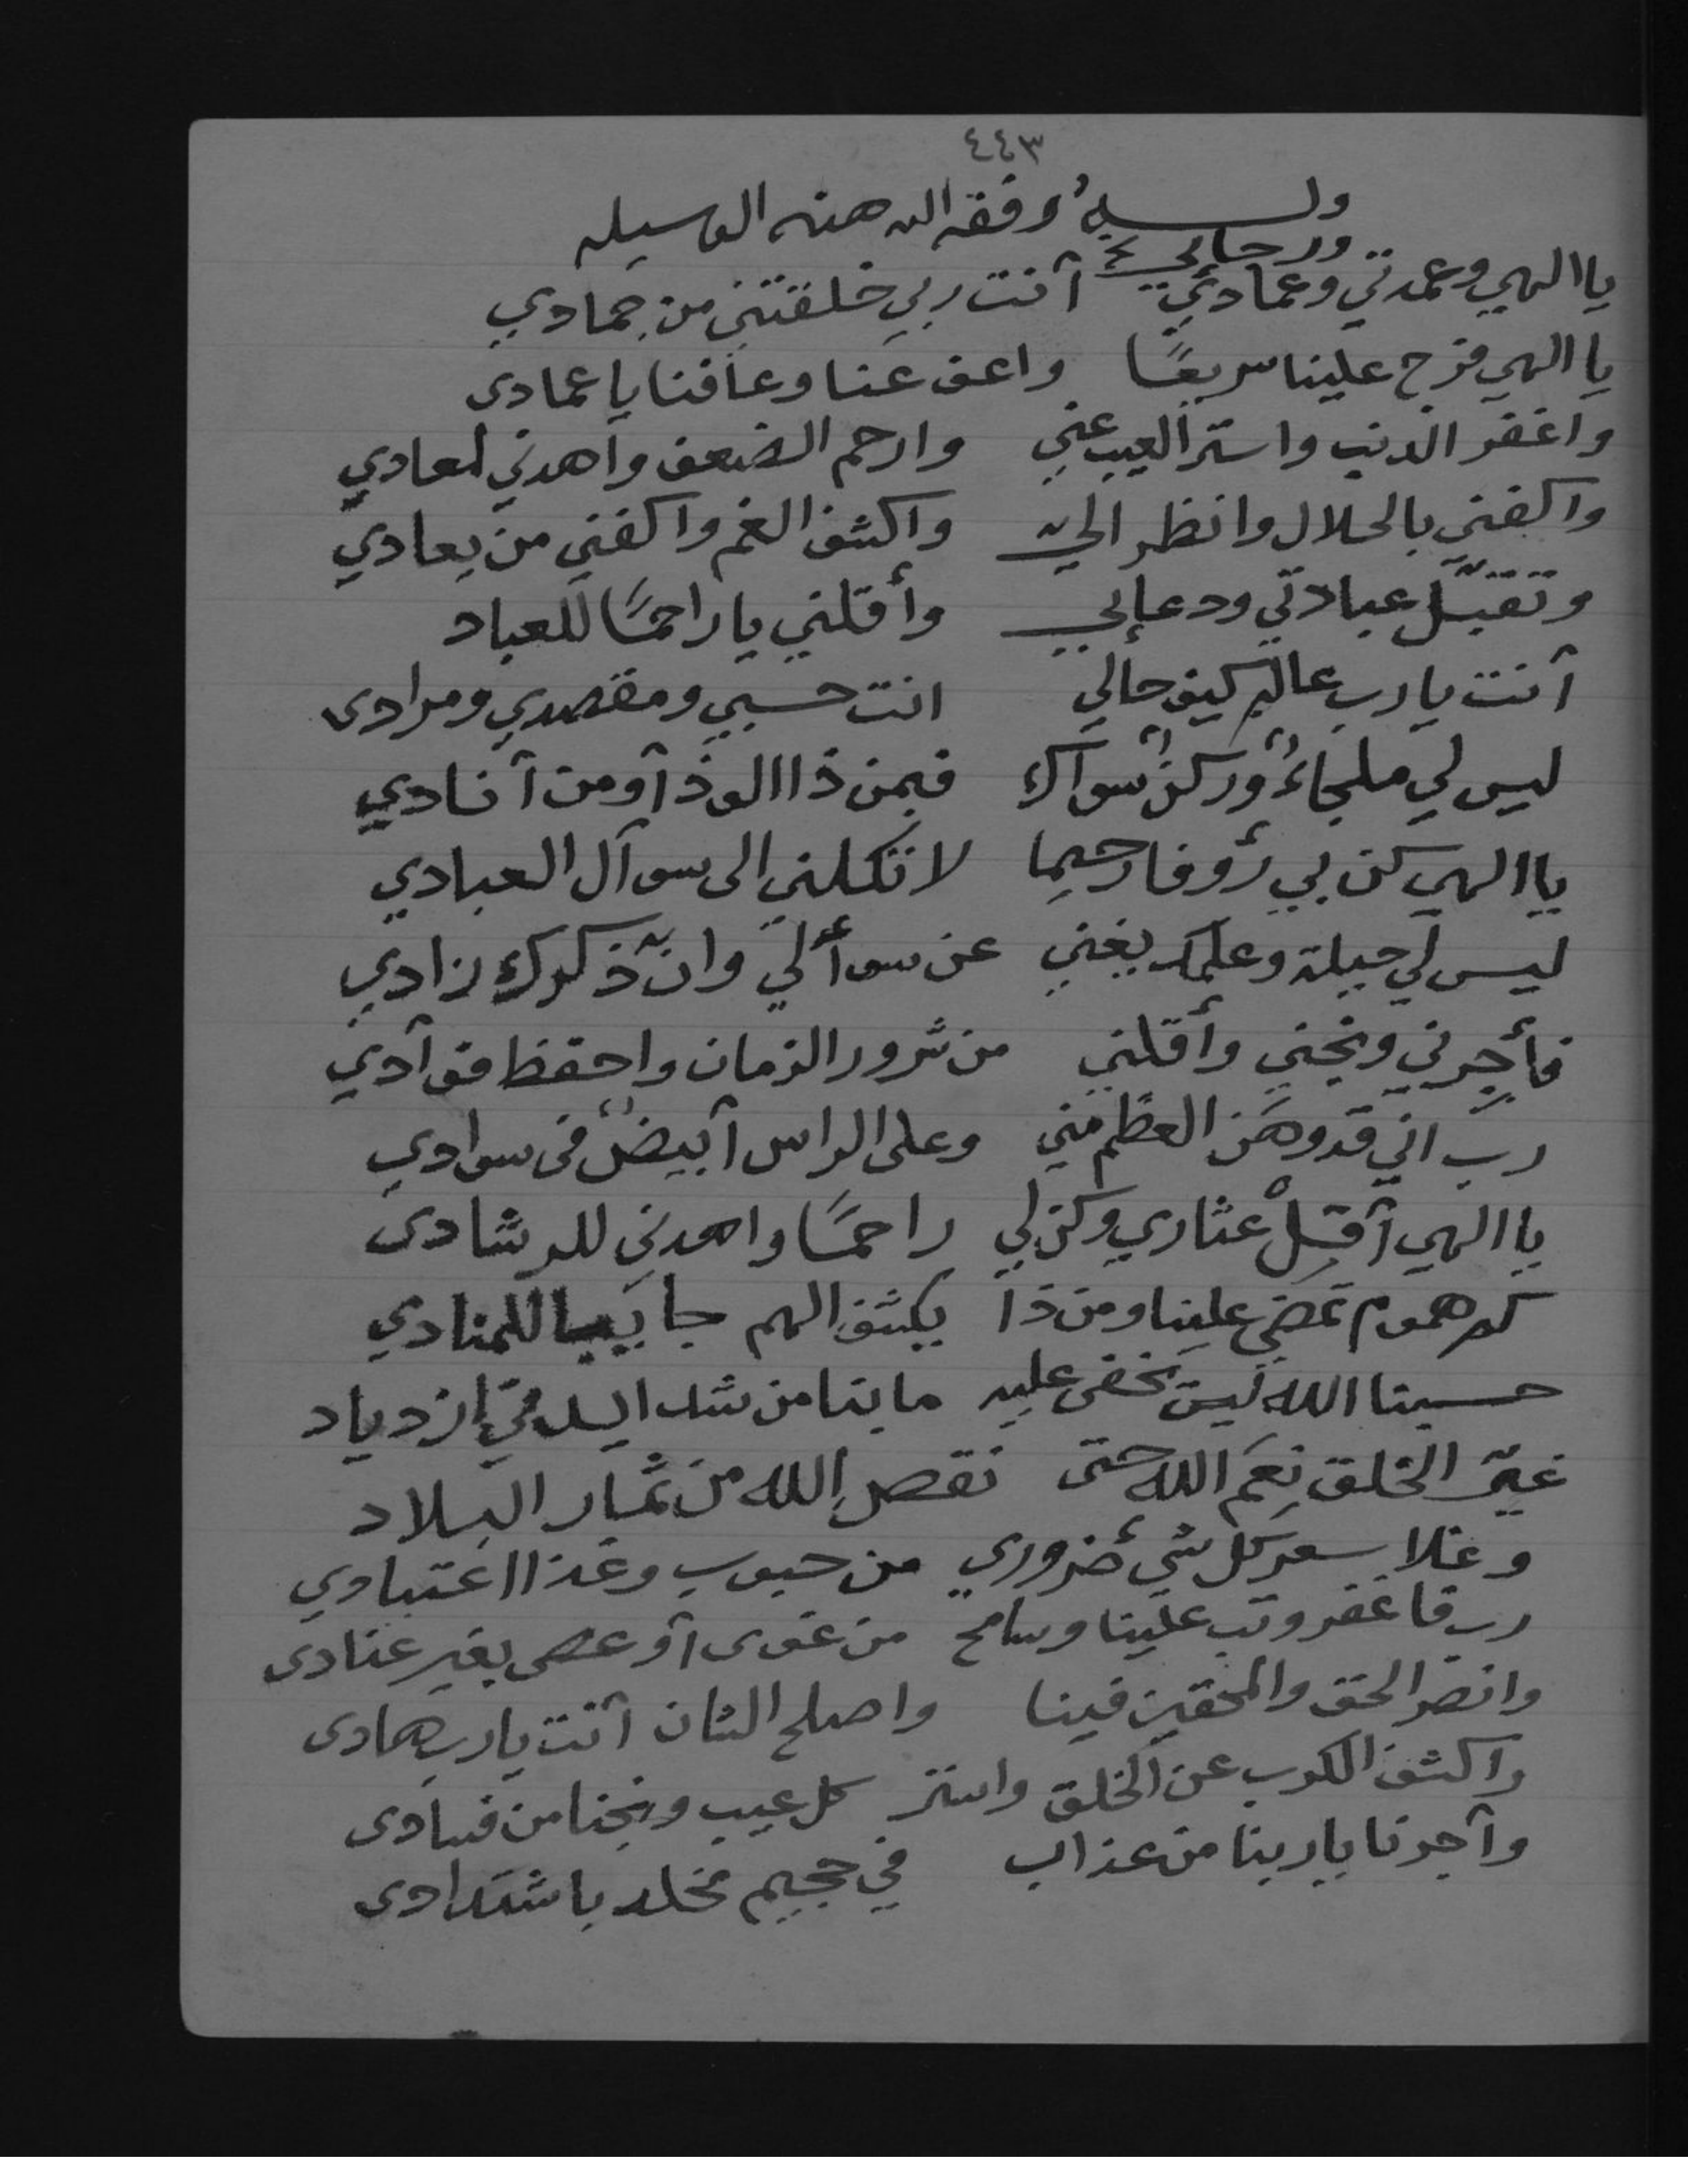 ٤٤٣
وله وفقه الله هذه الوسيله
ورجالي
ياالهي وعمدتي وعمادي آنت ربي خلقتني من جمادي
ياالهي فرج علينا سريعًا واعف عنا وعافنا يا عمادى
واغفر الذنب واستر العيب عني وارحم الضعف واهدني لمعادي
واكفني بالحلال وانظر اليّ واكشف الغم واكفني من يعادي
وتقبّل عبادتي ودعإيي وأقلني يا راحمًا للعباد
آنت يارب عالم كيف حالي انت حسبي ومقصدي ومرادى
ليس لي ملجاءٌ وركنٌ سواك فبمن ذاالوذ آو من آنادي
ياالهي كن بي رؤفا رحيما لا تكلني الى سوآل العبادي
ليس لي حيلة وعلمك يغني عن سوأ لي وانّ ذكرك زادي
فأجرني ونجني وأقلني من شرور الزمان واحفظ فوآدي
رب اني قد وهن العظم مني وعلى الراس آبيضٌ فى سوادي
ياالهي آقلْ عثاري وكن لي راحمًا واهدنى للرشادى
كم هموم تمضي علينا ومن ذا يكشف الهم جا يبيا للمنادي
حسبنا الله ليس يخفى عليه ما بنا من شدايد في ازدياد
غيّر الخلق نعم الله حتى نقص الله من ثمار البلاد
وغلا سعر كل شي ضروري من حبوب وغذا اعتيادي
رب فاغفر وتب علينا وسامح من غوى آو عصى بغير عنادى
وانصر الحق والمحقين فينا واصلح الشان آنت يارب هادى
واكشف الكرب عن الخلق واستر كل عيب ونجنا من فسادى
وآجرنا ياربنا من عذاب في جحيم مخلد باشتدادى